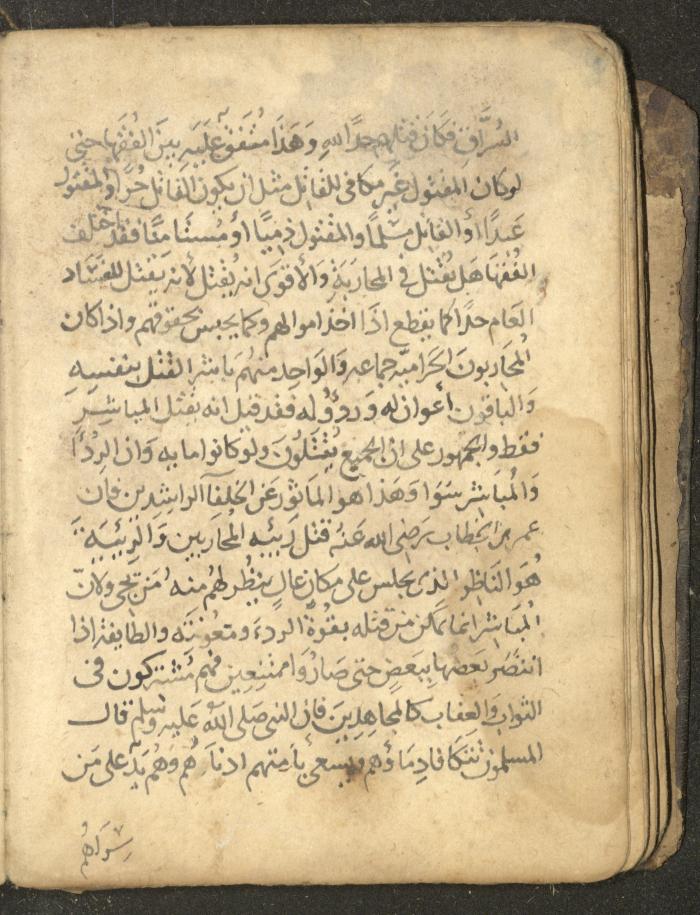 السُرَّاقِ فكان قتلهم حدًا للهِ وَهَذا متفق عَليَهِ بين الفُقَهاء حتى
لو كان المقتول غير مكافى للقاتل مثل ان يكون القاتل حُرًا والمقتول
عَبدًا او القاتل مسْلماً والمقتول ذميًا او مُستَامنًا فقد اختلف
الفُقهَا هَل يقُتل في المحاربَةِ وَالأقوى انه يُقتل لأنه يَقتل للفسَاد
العَام حدًا كما يقطع اذَا اخذ اموالهم وكما يحبس بحقوقهم واذا كان
المُحَاربونَ الحَراميّه جماعه وَالوَاحِد منهُم بَاشر القتْل بنفسِهِ
وَالباقون أعوان له وَردؤُ له فقد قيل انه يقتل المباشِر
فقط والجمهور على ان الجميع يُقتَلُونَ ولو كانوا مايه وَان الردْأ
وَالمُبَاشر سَوَا وَهَذا هو المَاثور عَن الخلفآ الراشدين فان
عمر بن الخطاب رَضِى الله عَنهُ قتل رَبيئه المُحَاربين وَالربيئَة
هُوَ النَاظر الذى يجلس على مكان عالٍ ينظُر لهُم منهُ مَن يجى ولأنّ
المُبَاشر انما تمكن من قتله بقُوةِ الردء ومعُونتَه والطايفة اذا
انتصَر بَعضهَا ببَعضٍ حتى صَارُوا ممتنِعِين فهم مُشتركون فى
الثواب والعقاب كالمجاهِدِينَ فان النبى صَلى اللهُ عَليه وسَلم قال
المسلمون تتكافا دِمَاؤهم ويسعى بذمتهم ادنَاهُم وَهُم يَدٌ على مَن
سِوَاهُم